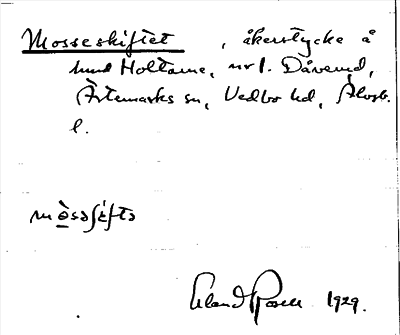 Mosseskiftet, åkerstycke å
hmd Holtane, nr 1. Dåverud,
Ärtemarks sn, Vedbo hd, Älvsb.
l.
Erland Rosell 1929.